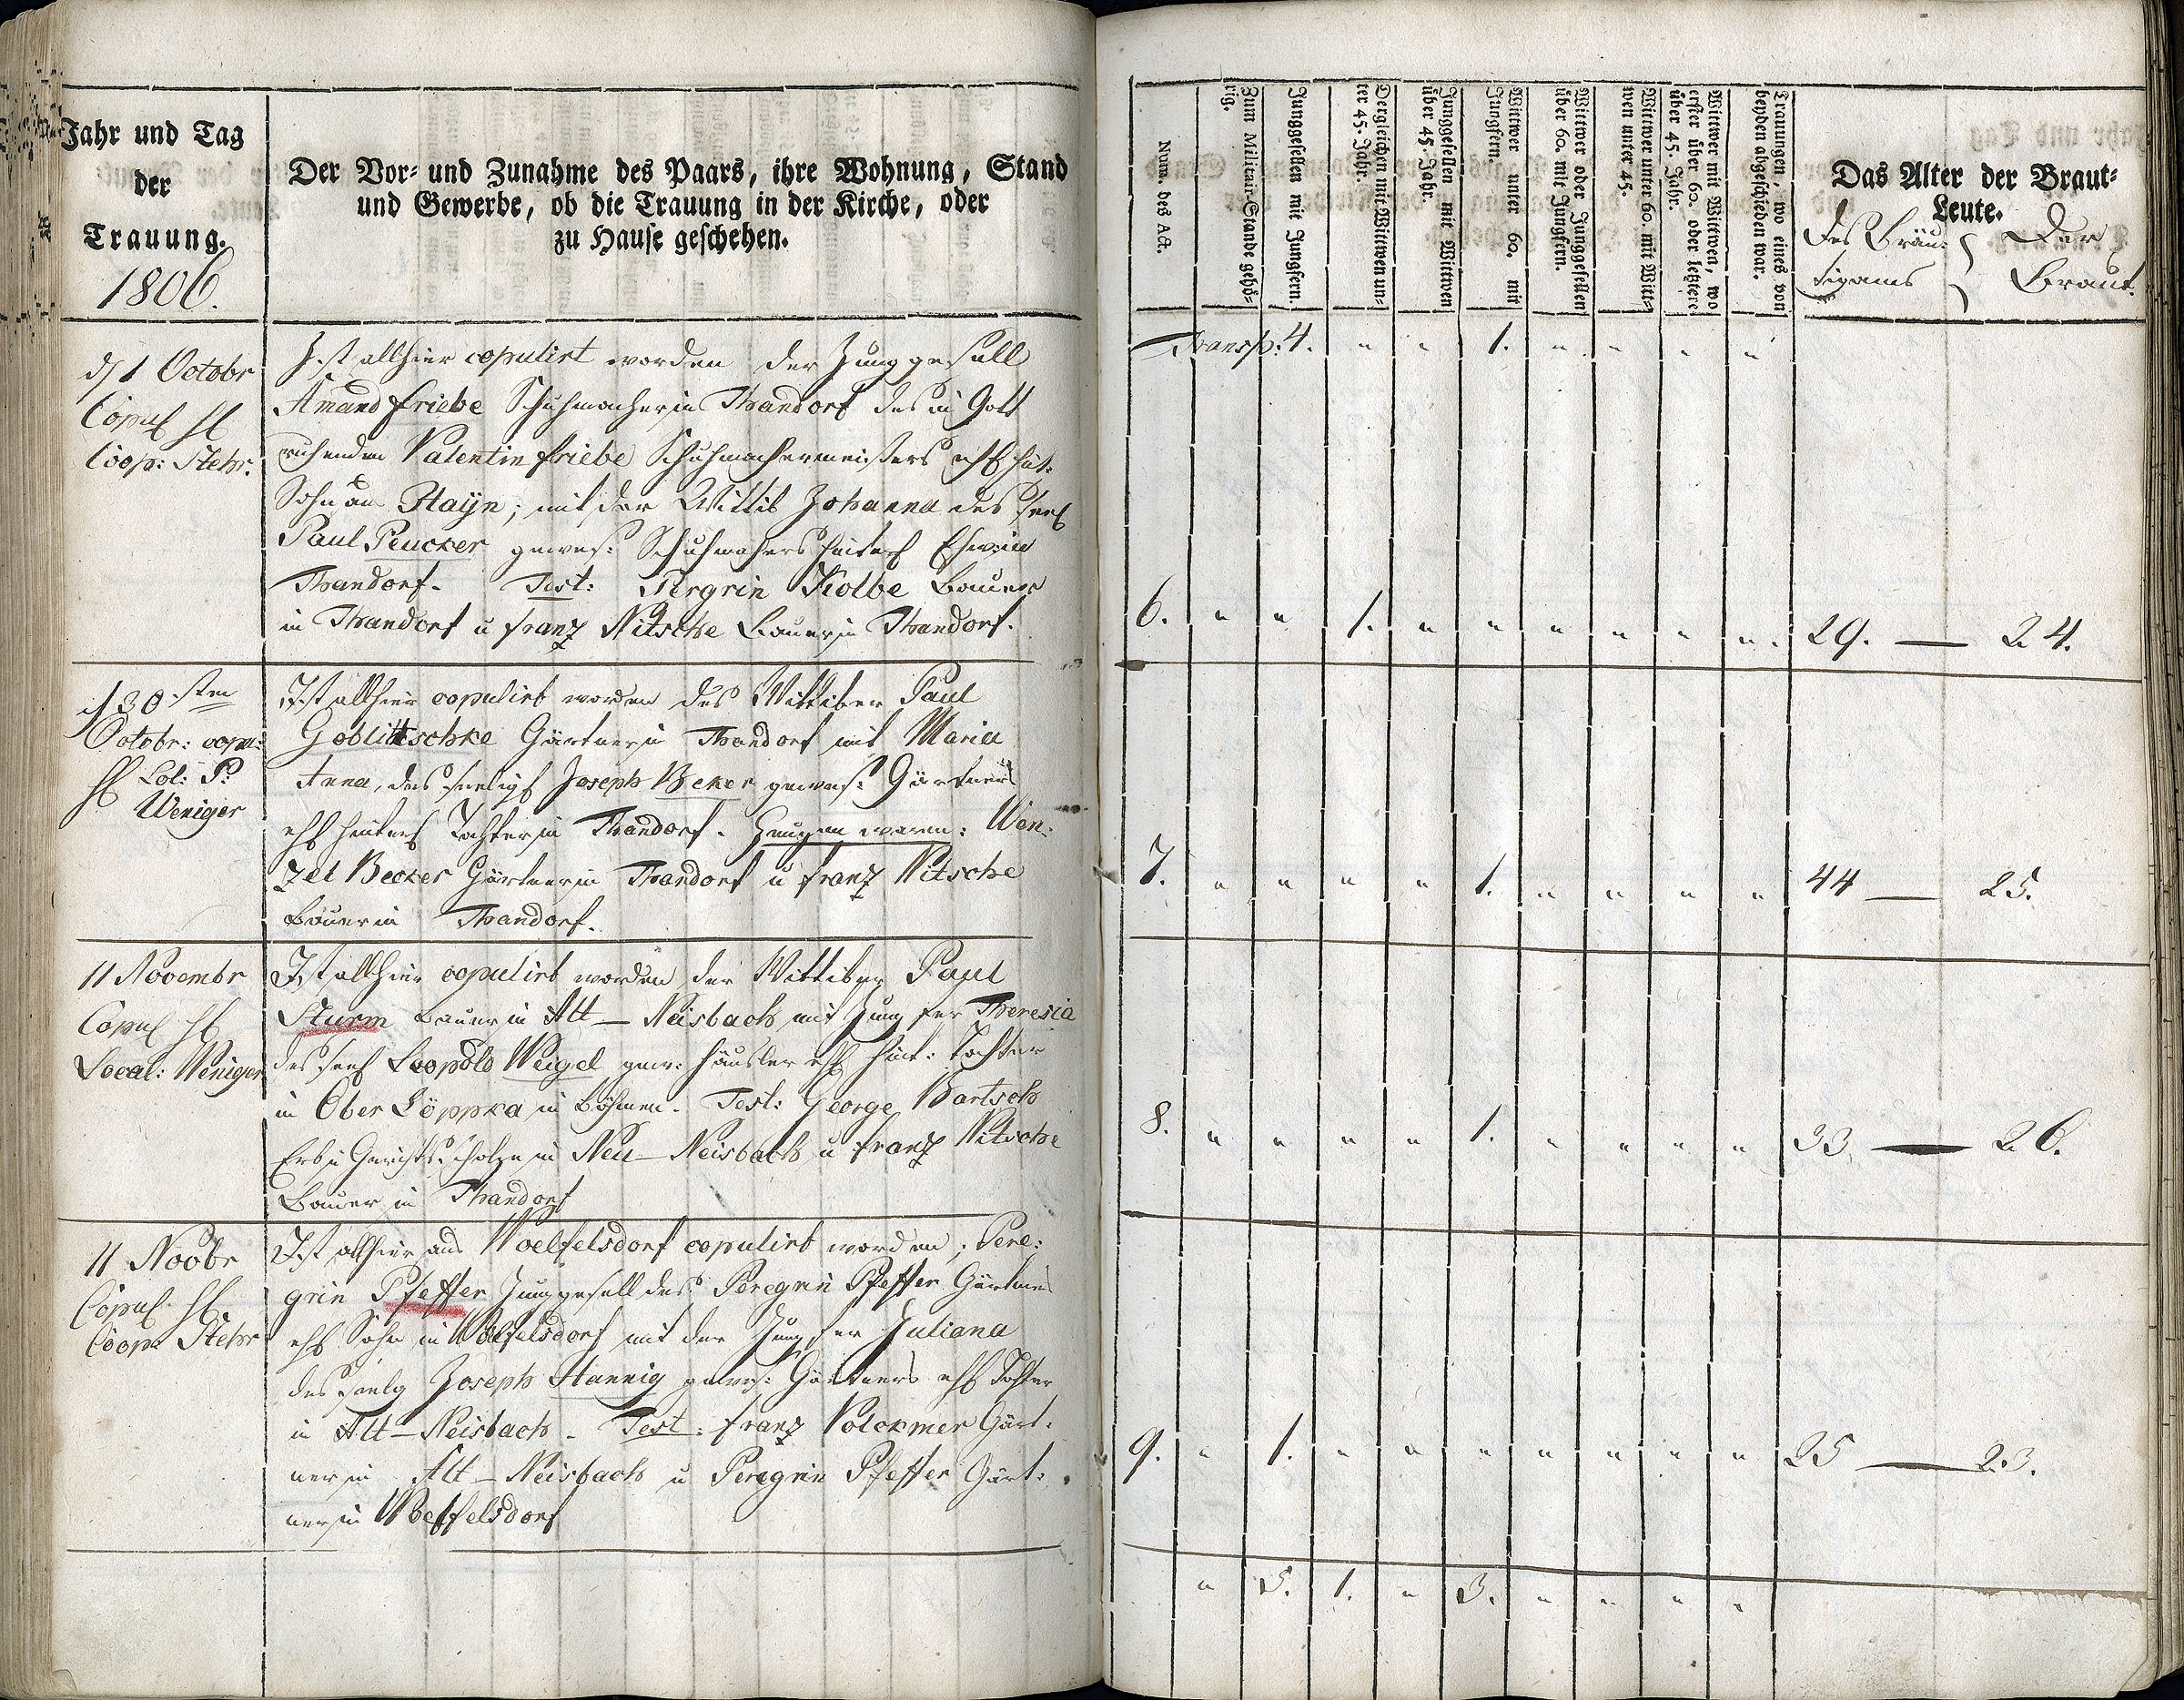 Jahr und Tag
der
Trauung.
1806.
Der Vor- und Zunahme des Paars, ihre Wohnung, Stand
und Gewerbe, ob die Trauung in der Kirche, oder
zu Hause geschehen.
d/1 Octobr
Copul
Coop: Stehr.
Ist allhier copulirt worden der Junggesell
Amand Friebe Schuhmacher in Thandorf des in Gott
ruhenden Valentin Friebe Schuhmachermeisters ehl hint:
Sohn am Hayn; mit der Wittib Johanna des seel
Paul Peucker gewes: Schuhmachers hinterl Ehewie
Thandorf. Test: Pergrin Kolbe Bauer
in Thandorf u Franz Nitsche Bauer in Thandorf.
d 30sten
Octobr: copu:
Lol: P:
Weniger
Ist allhier copulirt worden des Wittiber Paul
Goblitschke Gärtner in Thandorf mit Maria
Anna, des seeligl Joseph Beker gewes: Gärtners
ehl hinterl Tochter in Thandorf. Zeugen waren: Wen:
zel Becker Gärtner in Thandorf u Franz Nitsche
Bauer in Thandorf.
11 Novembr
Copul
Local: Weniger
Ist allhier copulirt worden der Wittiber Paul
Sturm Bauer in Alt-Neisbach mit Jungfer Theresia
des seel Leopold Weigel gew: Häusler ehl hint: Tochter
in Ober Lippka in Böhmen. Test: George Bartsch
Erb u Gerichts Scholze in Neu-Neisbach u Franz Nitsche
Bauer in Thandorf
11 Novbr
Copul.
Coop: Stehr
Ist allhier aus Woelfelsdorf copulirt worden; Pere:
grin Pfeffer Junggesell des Peregrin Pfeffer Gärtners
ehl Sohn in Wölfelsdorf mit der Jungfer Juliana
des seelg Joseph Hannig gewes: Gärtners ehl Tochter
in Alt-Neisbach. Test: Franz Volckmer Gärt:
ner in Alt-Neisbach u Peregrin Pfeffer Gärt:
ner in Woelfelsdorf
Num. des Act.
Zum Militair-Stande gehö-
rig.
Junggesellen mit Jungfern.
Dergleichen mit Wittwen un-
ter 45. Jahr.
Junggesellen mit Wittwen
über 45. Jahr.
Wittwer unter 60. mit
Jungfern.
Wittwer oder Junggesellen
über 60. mit Jungfern.
Wittwer unter 60. mit Witt-
wen unter 45.
Wittwer mit Wittwen, wo
erster über 60. oder letztere
über 45. Jahr.
Trauungen, wo eines von
beyden abgeschieden war.
Das Alter der Braut-
Leute.
des Bräu: Der
tigams Braut.
Transp: 4. " " 1. " " " "
6. " " 1. " " " " " " 29. — 24.
7. " " " " 1. " " " " 44 — 25.
8. " " " " 1. " " " " 33 — 26.
9. " 1. " " " " " " " 25 — 23.
" 5. 1. " 3. " " " "